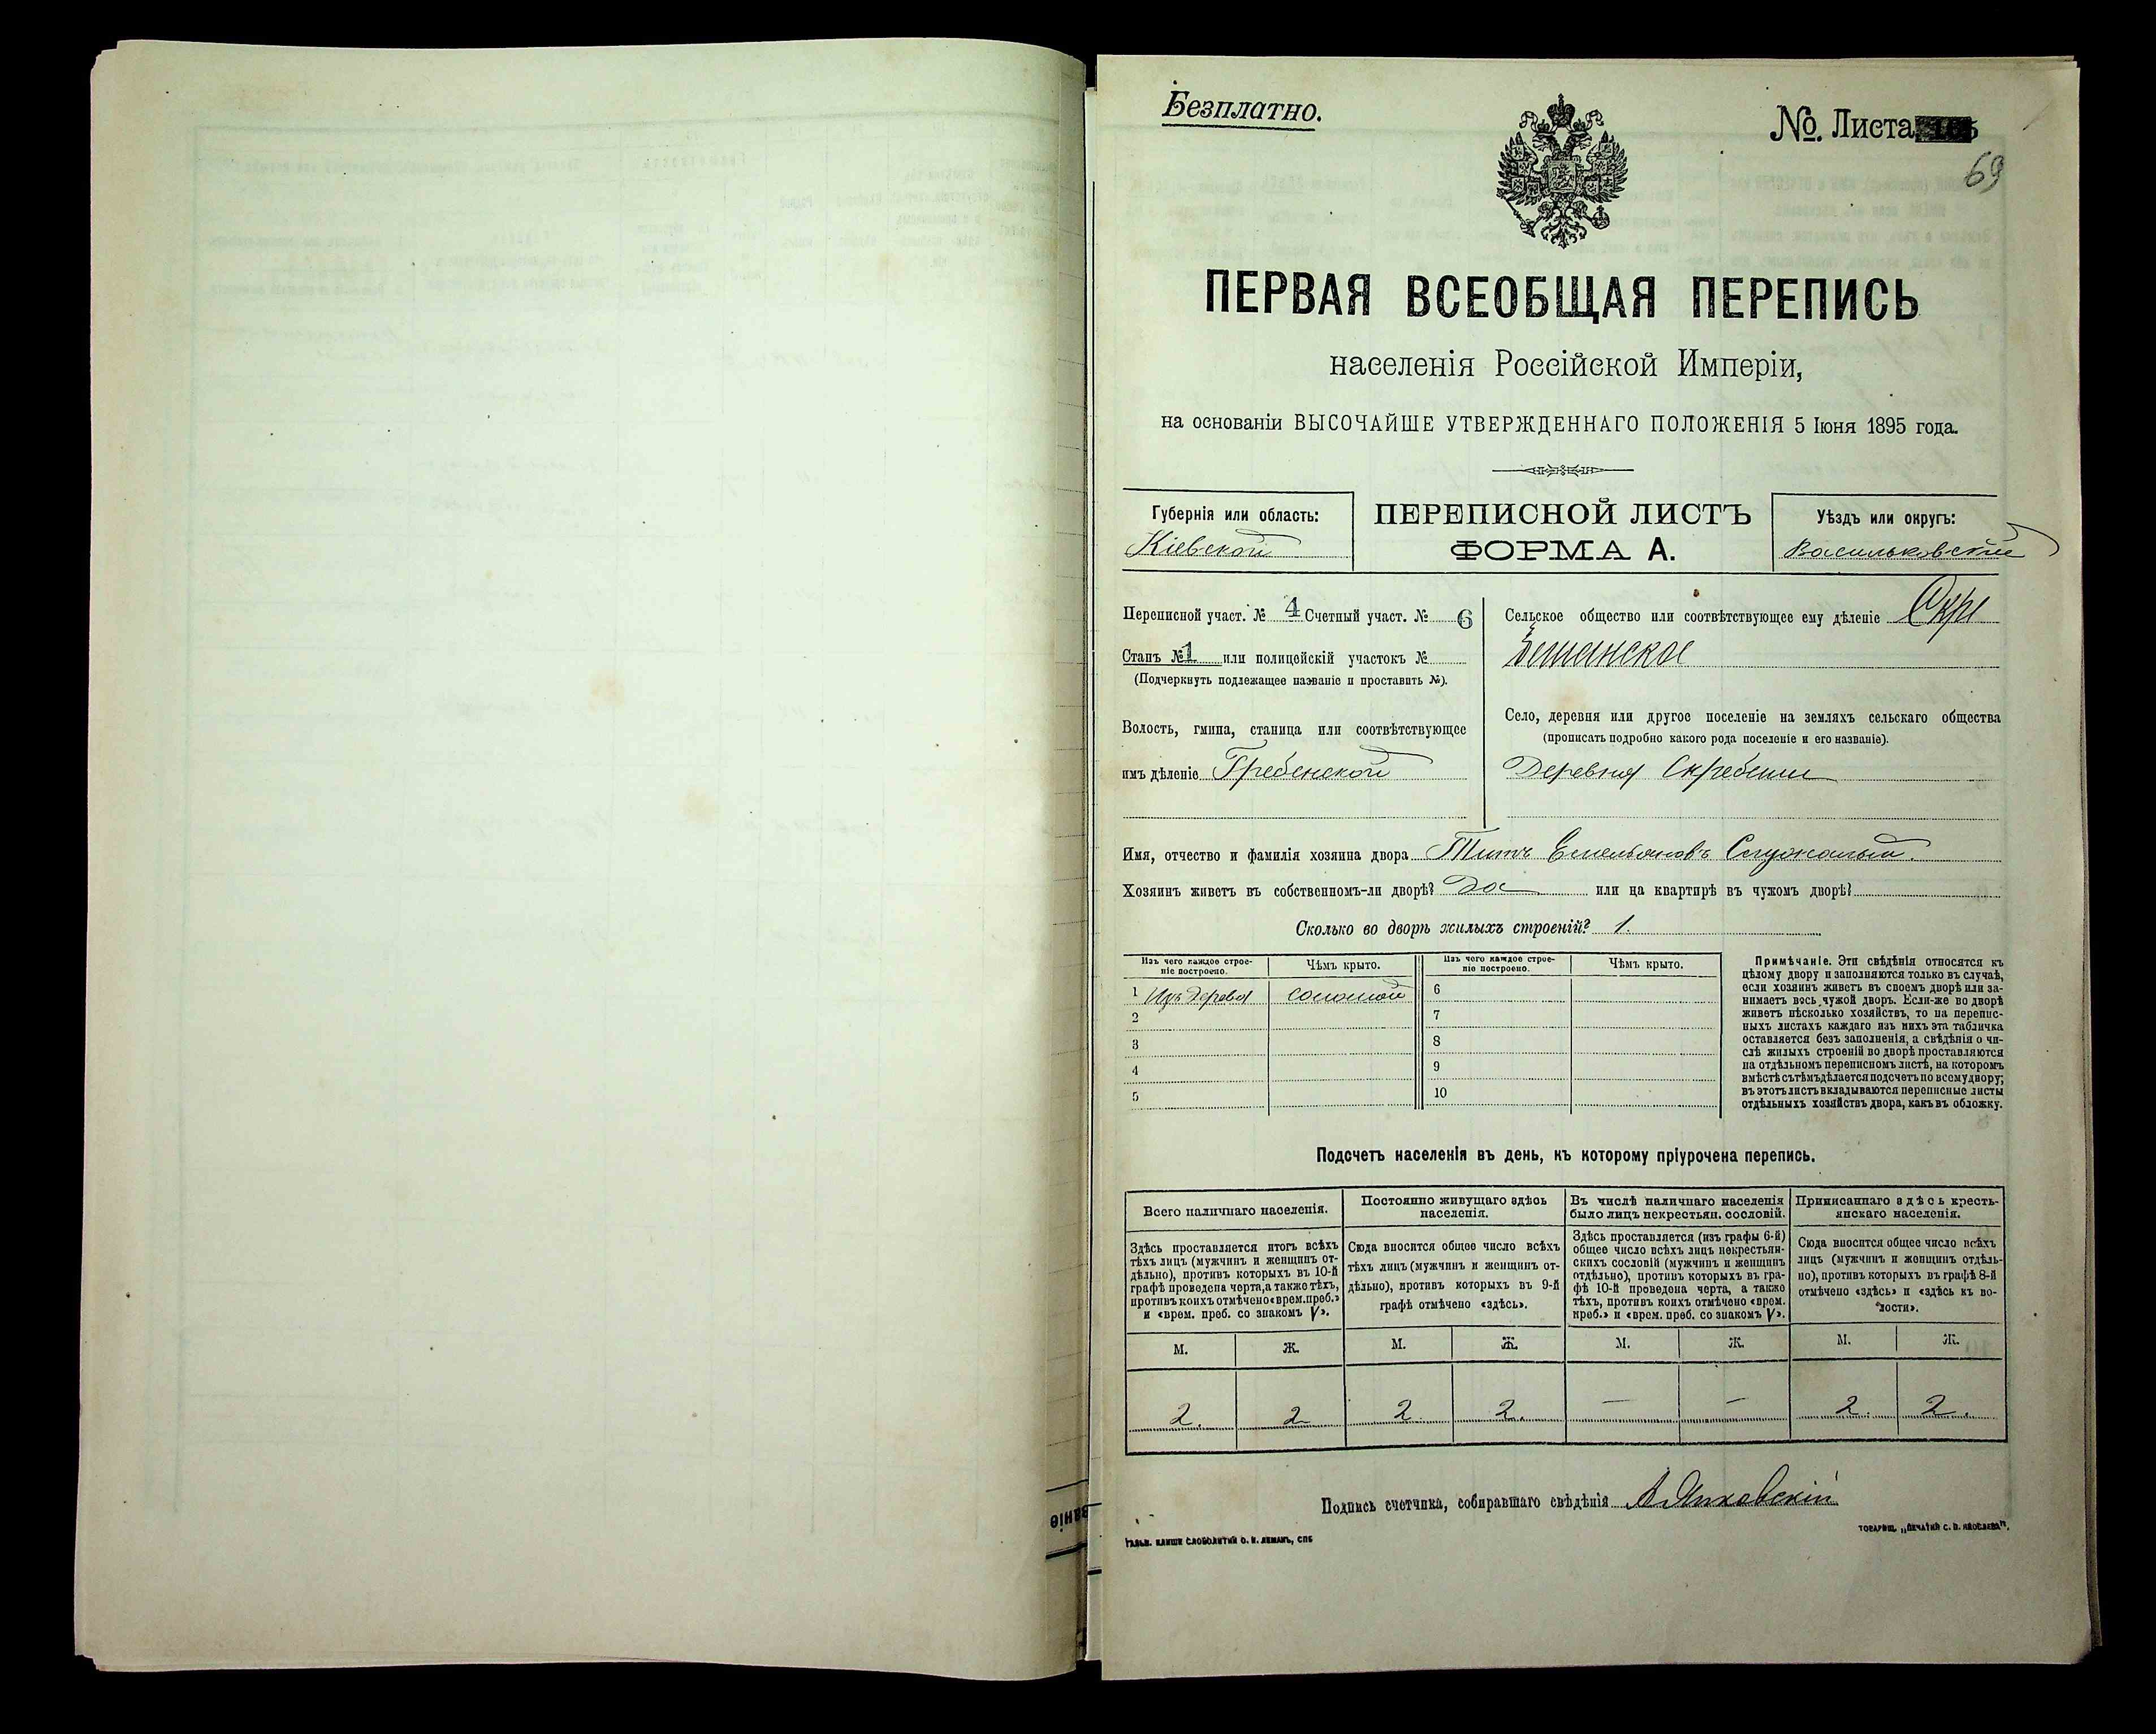 Безплатно.
№. Листа
69
ПЕРВАЯ ВСЕОБЩАЯ ПЕРЕПИСЬ
населенія Россійской Имперіи,
на основаніи ВЫСОЧАЙШЕ УТВЕРЖДЕННАГО ПОЛОЖЕНІЯ 5 Іюня 1895 года.
Губернія или область:
Кіевской
ПЕРЕПИСНОЙ ЛИСТЪ
ФОРМА А.
Уѣздъ или округъ:
Васильковскій
Переписной участ. № 4 Счетный участ. № 6
Станъ № 1 или полицейскій участокъ №
(Подчеркнуть подлежащее названіе и проставить №).
Волость, гмина, станица или соотвѣтствующее
имъ дѣленіе Гребенской
Сельское общество или соотвѣтствующее ему дѣленіе Скре
бешанское
Село, деревня или другое поселеніе на земляхъ сельскаго общества
(прописать подробно какого рода поселеніе и его названіе).
Деревня Скребеши
Имя, отчество и фамилія хозяина двора Титъ Емельяновъ
Хозяинъ живетъ въ собственномъ-ли дворѣ? Да или на квартирѣ въ чужомъ дворѣ?
Сколько во дворѣ жилыхъ строеній? 1.
Изъ чего каждое строе-
ніе построено.
Чѣмъ крыто.
Изъ чего каждое строе-
ніе построено.
Чѣмъ крыто.
1 Изъ дерева соломой 6
2 7
3 8
4 9
5 10
Примѣчаніе. Эти свѣдѣнія относятся къ
цѣлому двору и заполняются только въ случаѣ,
если хозяинъ живетъ въ своемъ дворѣ или за-
нимаетъ весь чужой дворъ. Если-же во дворѣ
живетъ нѣсколько хозяйствъ, то на перепис-
ныхъ листахъ каждаго изъ нихъ эта табличка
оставляется безъ заполненія, а свѣдѣнія о чи-
слѣ жилыхъ строеній во дворѣ проставляются
на отдѣльномъ переписномъ листѣ, на которомъ
вмѣстѣ съ тѣмъ дѣлается подсчетъ по всему двору;
въ этотъ листъ вкладываются переписные листы
отдѣльныхъ хозяйствъ двора, какъ въ обложку.
Подсчетъ населенія въ день, къ которому пріурочена перепись.
Всего наличнаго населенія.
Постоянно живущаго здѣсь
населенія.
Въ числѣ наличнаго населенія
было лицъ некрестьян. сословій.
Приписаннаго здѣсь кресть-
янскаго населенія.
Здѣсь проставляется итогъ всѣхъ
тѣхъ лицъ (мужчинъ и женщинъ от-
дѣльно), противъ которыхъ въ 10-й
графѣ проведена черта, а также тѣхъ,
противъ коихъ отмѣчено «врем. преб.»
и «врем. преб. со знакомъ V».
Сюда вносится общее число всѣхъ
тѣхъ лицъ (мужчинъ и женщинъ от-
дѣльно), противъ которыхъ въ 9-й
графѣ отмѣчено «здѣсь».
Здѣсь проставляется (изъ графы 6-й)
общее число всѣхъ лицъ некрестьян-
скихъ сословій (мужчинъ и женщинъ
отдѣльно), противъ которыхъ въ гра-
фѣ 10-й проведена черта, а также
тѣхъ, противъ коихъ отмѣчено «врем.
преб.» и «врем. преб. со знакомъ V».
Сюда вносится общее число всѣхъ
лицъ (мужчинъ и женщинъ отдѣль-
но), противъ которыхъ въ графѣ 8-й
отмѣчено «здѣсь» и «здѣсь къ во-
лости».
М. Ж. М. Ж. М. Ж. М. Ж.
2. 2 2. 2. — — 2. 2.
Подпись счетчика, собиравшаго свѣдѣнія
ГАЛЬВ. КЛИШЕ СЛОВОЛИТНИ О. И. ЛЕМАНЪ, СПБ
ТОВАРИЩ. „ПЕЧАТНЯ С. П. ЯКОВЛЕВА“,